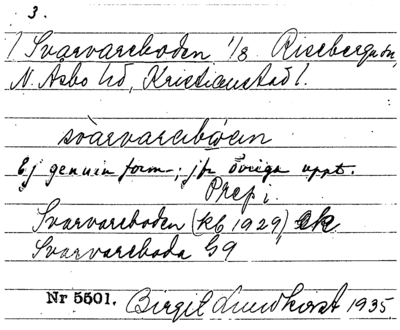 3.
1 Svarvareboden 1/8 Riseberga sn,
N. Åsbo hd, Kristianstad l.
svarvarebooen
Ej genuin form; jfr övriga uppt.
Prep i.
Svarvareboden (kb 1929) ek
Svarvareboda G9
Nr 5501. Birgit Lundkvist 1935